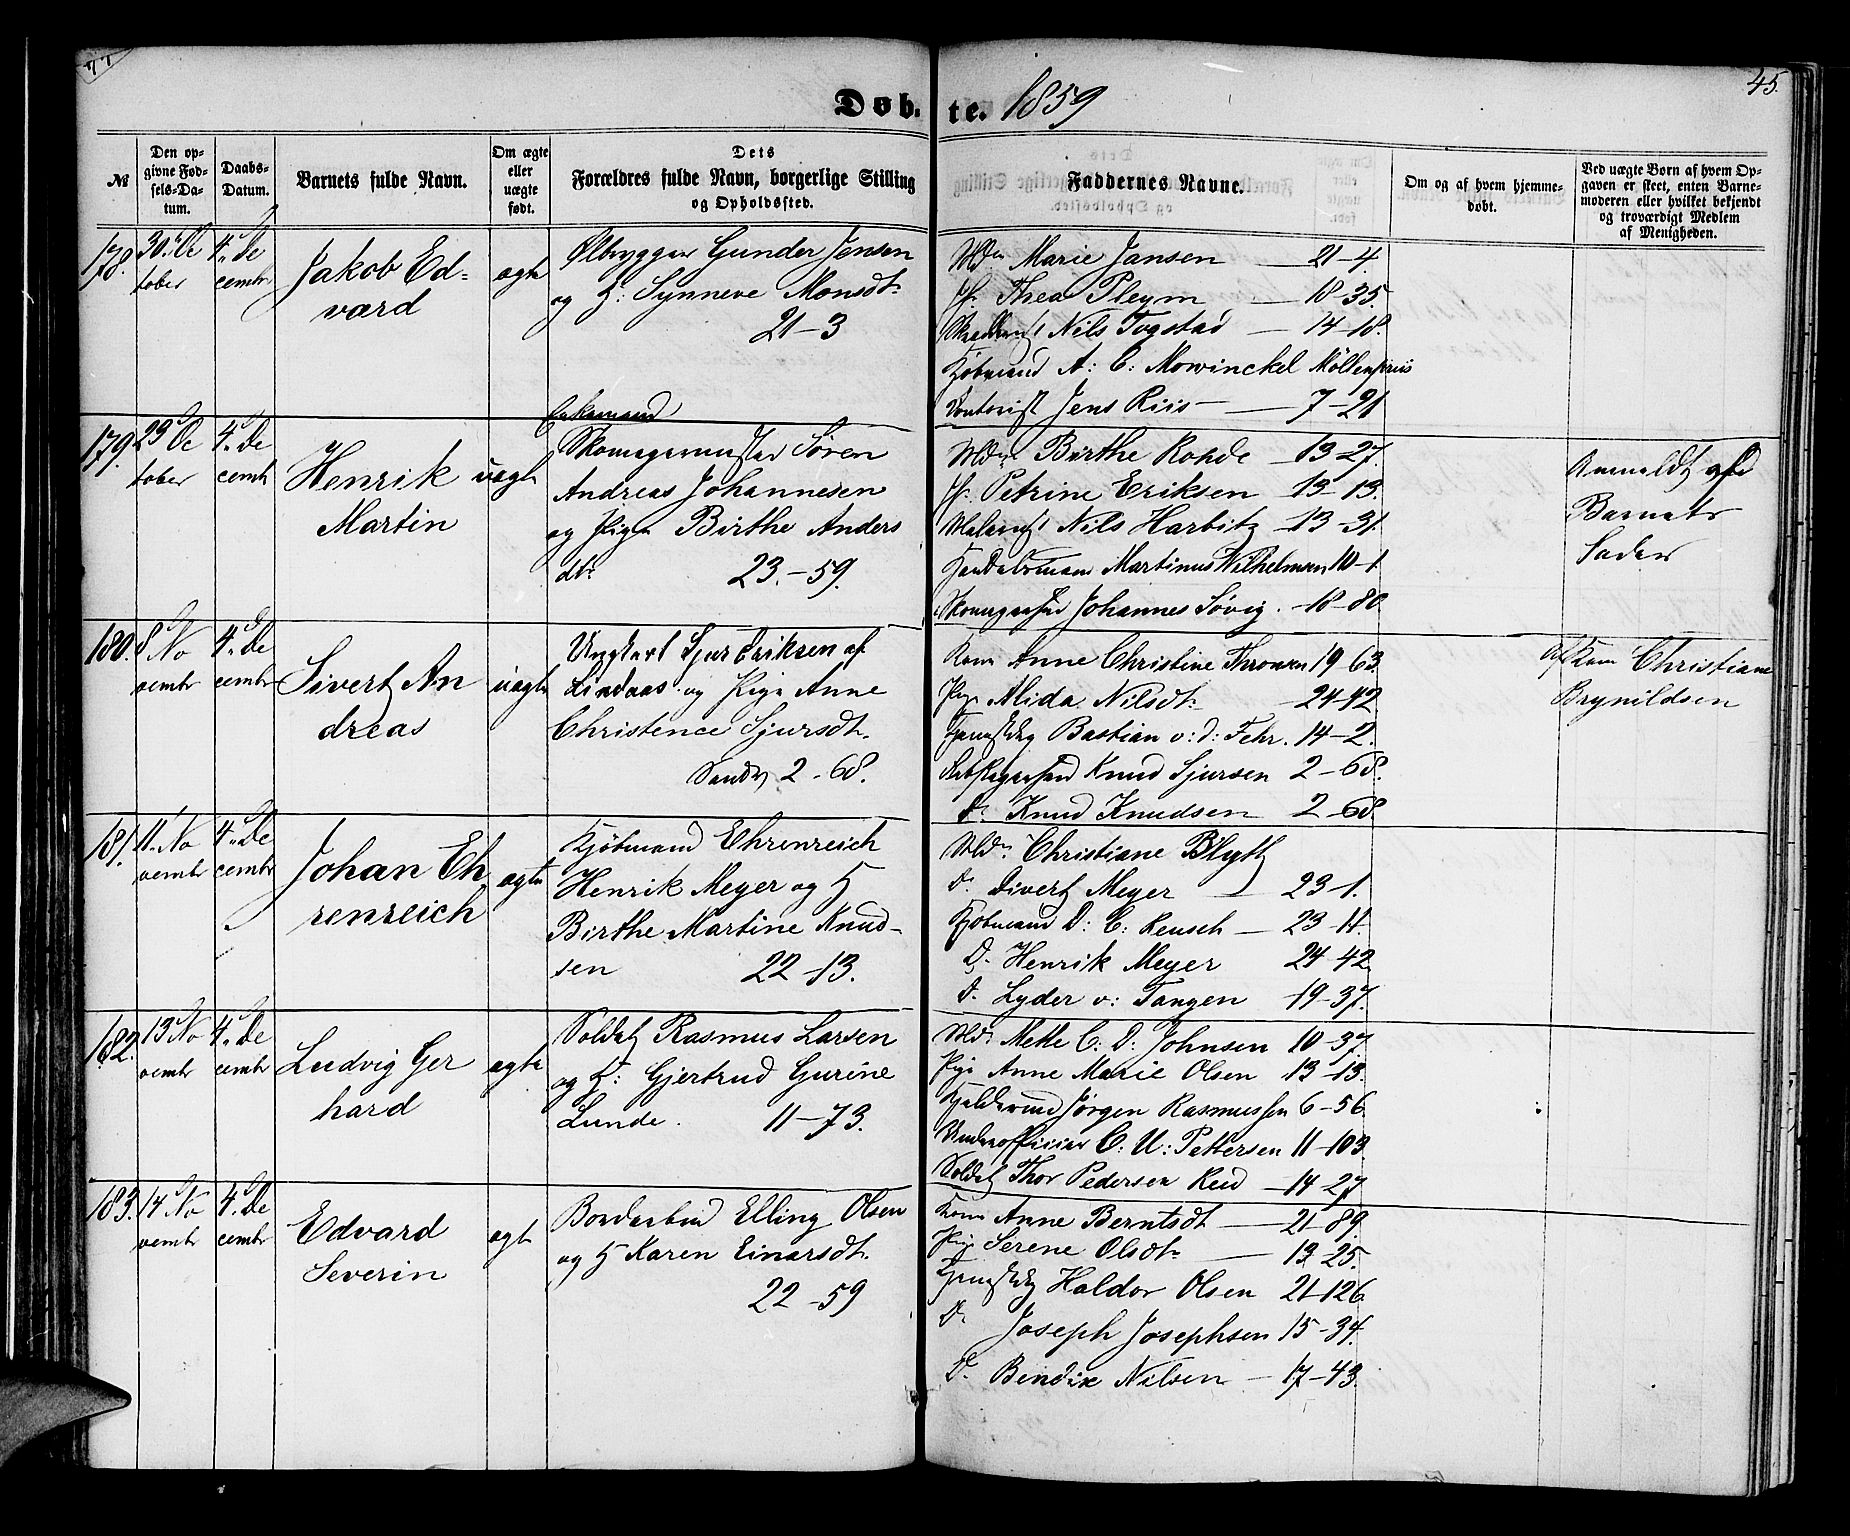 45.
Døbte. 1859
№
Den opgivne Fødsels-Datum.
Daabs-Datum.
Barnets fulde Navn.
Om ægte eller uægte født.
Dets Forældres fulde Navn, borgerlige Stilling og Opholdssted.
Faddernes Navne.
Om og af hvem hjemmedøbt.
Ved uægte Børn af hvem Opgaven er skeet, enten Barnemoderen eller hvilket bekjendt og troværdigt Medlem af Menigheden.
178.
30 Oc
tober
4. De
cembr
Jakob Ed-
vard
ægte
Ølbrygger Gunder Jensen
og H: Synneve Monsdtr
21-3
Mdm Marie Jansen 21-4.
Jfr Thea Pleym 18-35.
Nils Togstad 14-18.
Kjøbmand A: C: Mowinckel Möllenpriis
Contorist Jens Riis 7-21
179.
29 Oc
tober
4. De
cembr
Henrik
Martin
uægte
Enkemand
Skomagermester Søren
Andreas Johannesen
og Pige Birthe Anders
dtr 23.-59.
Mdm Birthe Rohde 13-27.
Jfr. Petrine Eriksen 13-13.
Nils Harbitz 13-31.
Handelsmand Martinus Wilhelmsen 10-1
Johannes Søvig. 18-80
Anmeldt af
Barnets
Fader
180.
8 No
vembr
4. De
cembr
Sivert An
dreas
uægte
Ungkarl Sjur Eriksen af
Lindaas og Pige Anne
Christence Sjursdtr.
2-68.
Kone Anne Christine Thronsen 19-63.
Pige Alida Nilsdtr 24-42.
Bastian v: d: Fehr. 14-2.
Knud Sjursen 2-68.
Do Knud Knudsen 2-68
Af Kone Christiane
Brynildsen
181.
11. No
vembr
4. De
cembr
Johan Eh
renreich
ægte
Kjøbmand Ehrenreich
Henrik Meyer og H
Birthe Martine Knud-
sen 22-13.
Mdm. Christiane Blyth
Do Sivert Meyer 23-1.
Kjøbmand D: C: Reusch 23-11.
Do. Henrik Meyer 24-42
Do. Lyder v: Tangen 19-37.
182.
13 No
vembr
4. De
cembr
Ludvig Ger
hard
ægte
Soldat Rasmus Larsen
og H: Gjertrud Gurine
Lunde. 11-73.
Md: Mette C: D: Johnsen 10-37.
Pige Anne Marie Olsen 13-13.
Jørgen Rasmussen 6-56.
Underofficier C: U: Pettersen 11-103.
Soldat Thor Pedersen Reid 14-27
183.
14 No
vembr
4. De
cembr
Edvard
Severin
ægte
Elling Olsen
og H Karen Einarsdtr.
22-59
Kone Anne Berntsdtr 21-89.
Pige Serene Olsdtr 13-25.
Haldor Olsen 21-126
Do
Joseph Josephsen 15-34.
Do. Bendix Nilsen 17-43.